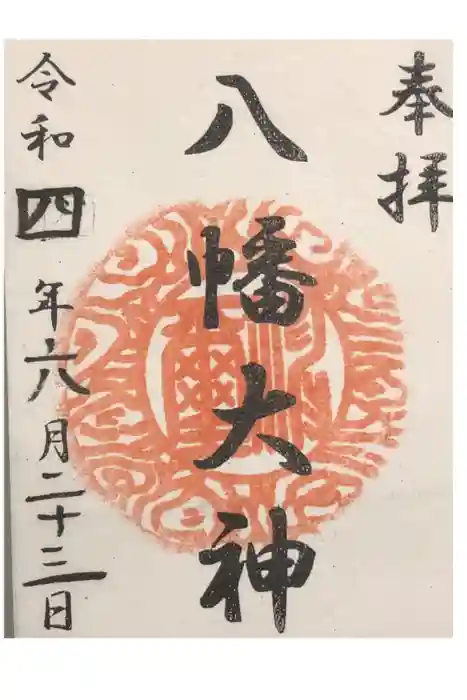 奉拝
八幡大神
令和四年六月二十三日